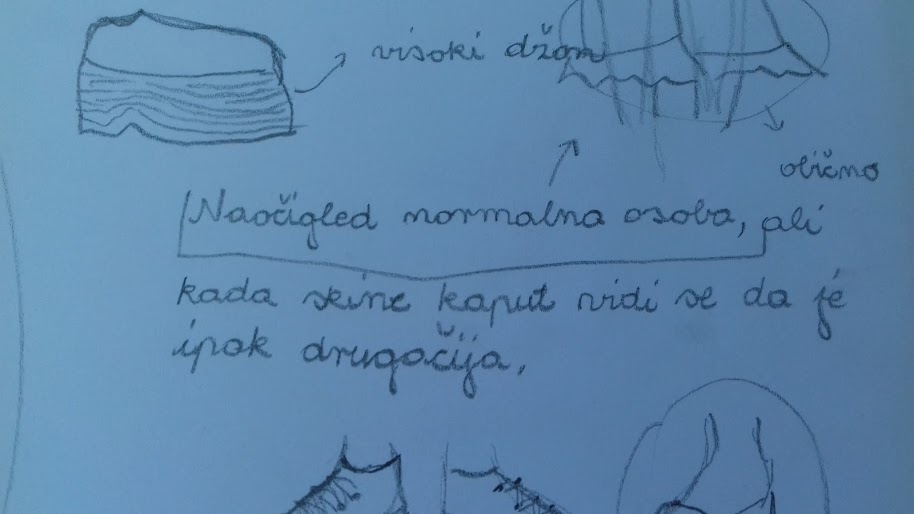 visoki džon
obično
Naočigled normalna osoba, ali
kada skine kaput vidi se da je
ipak drugačija.